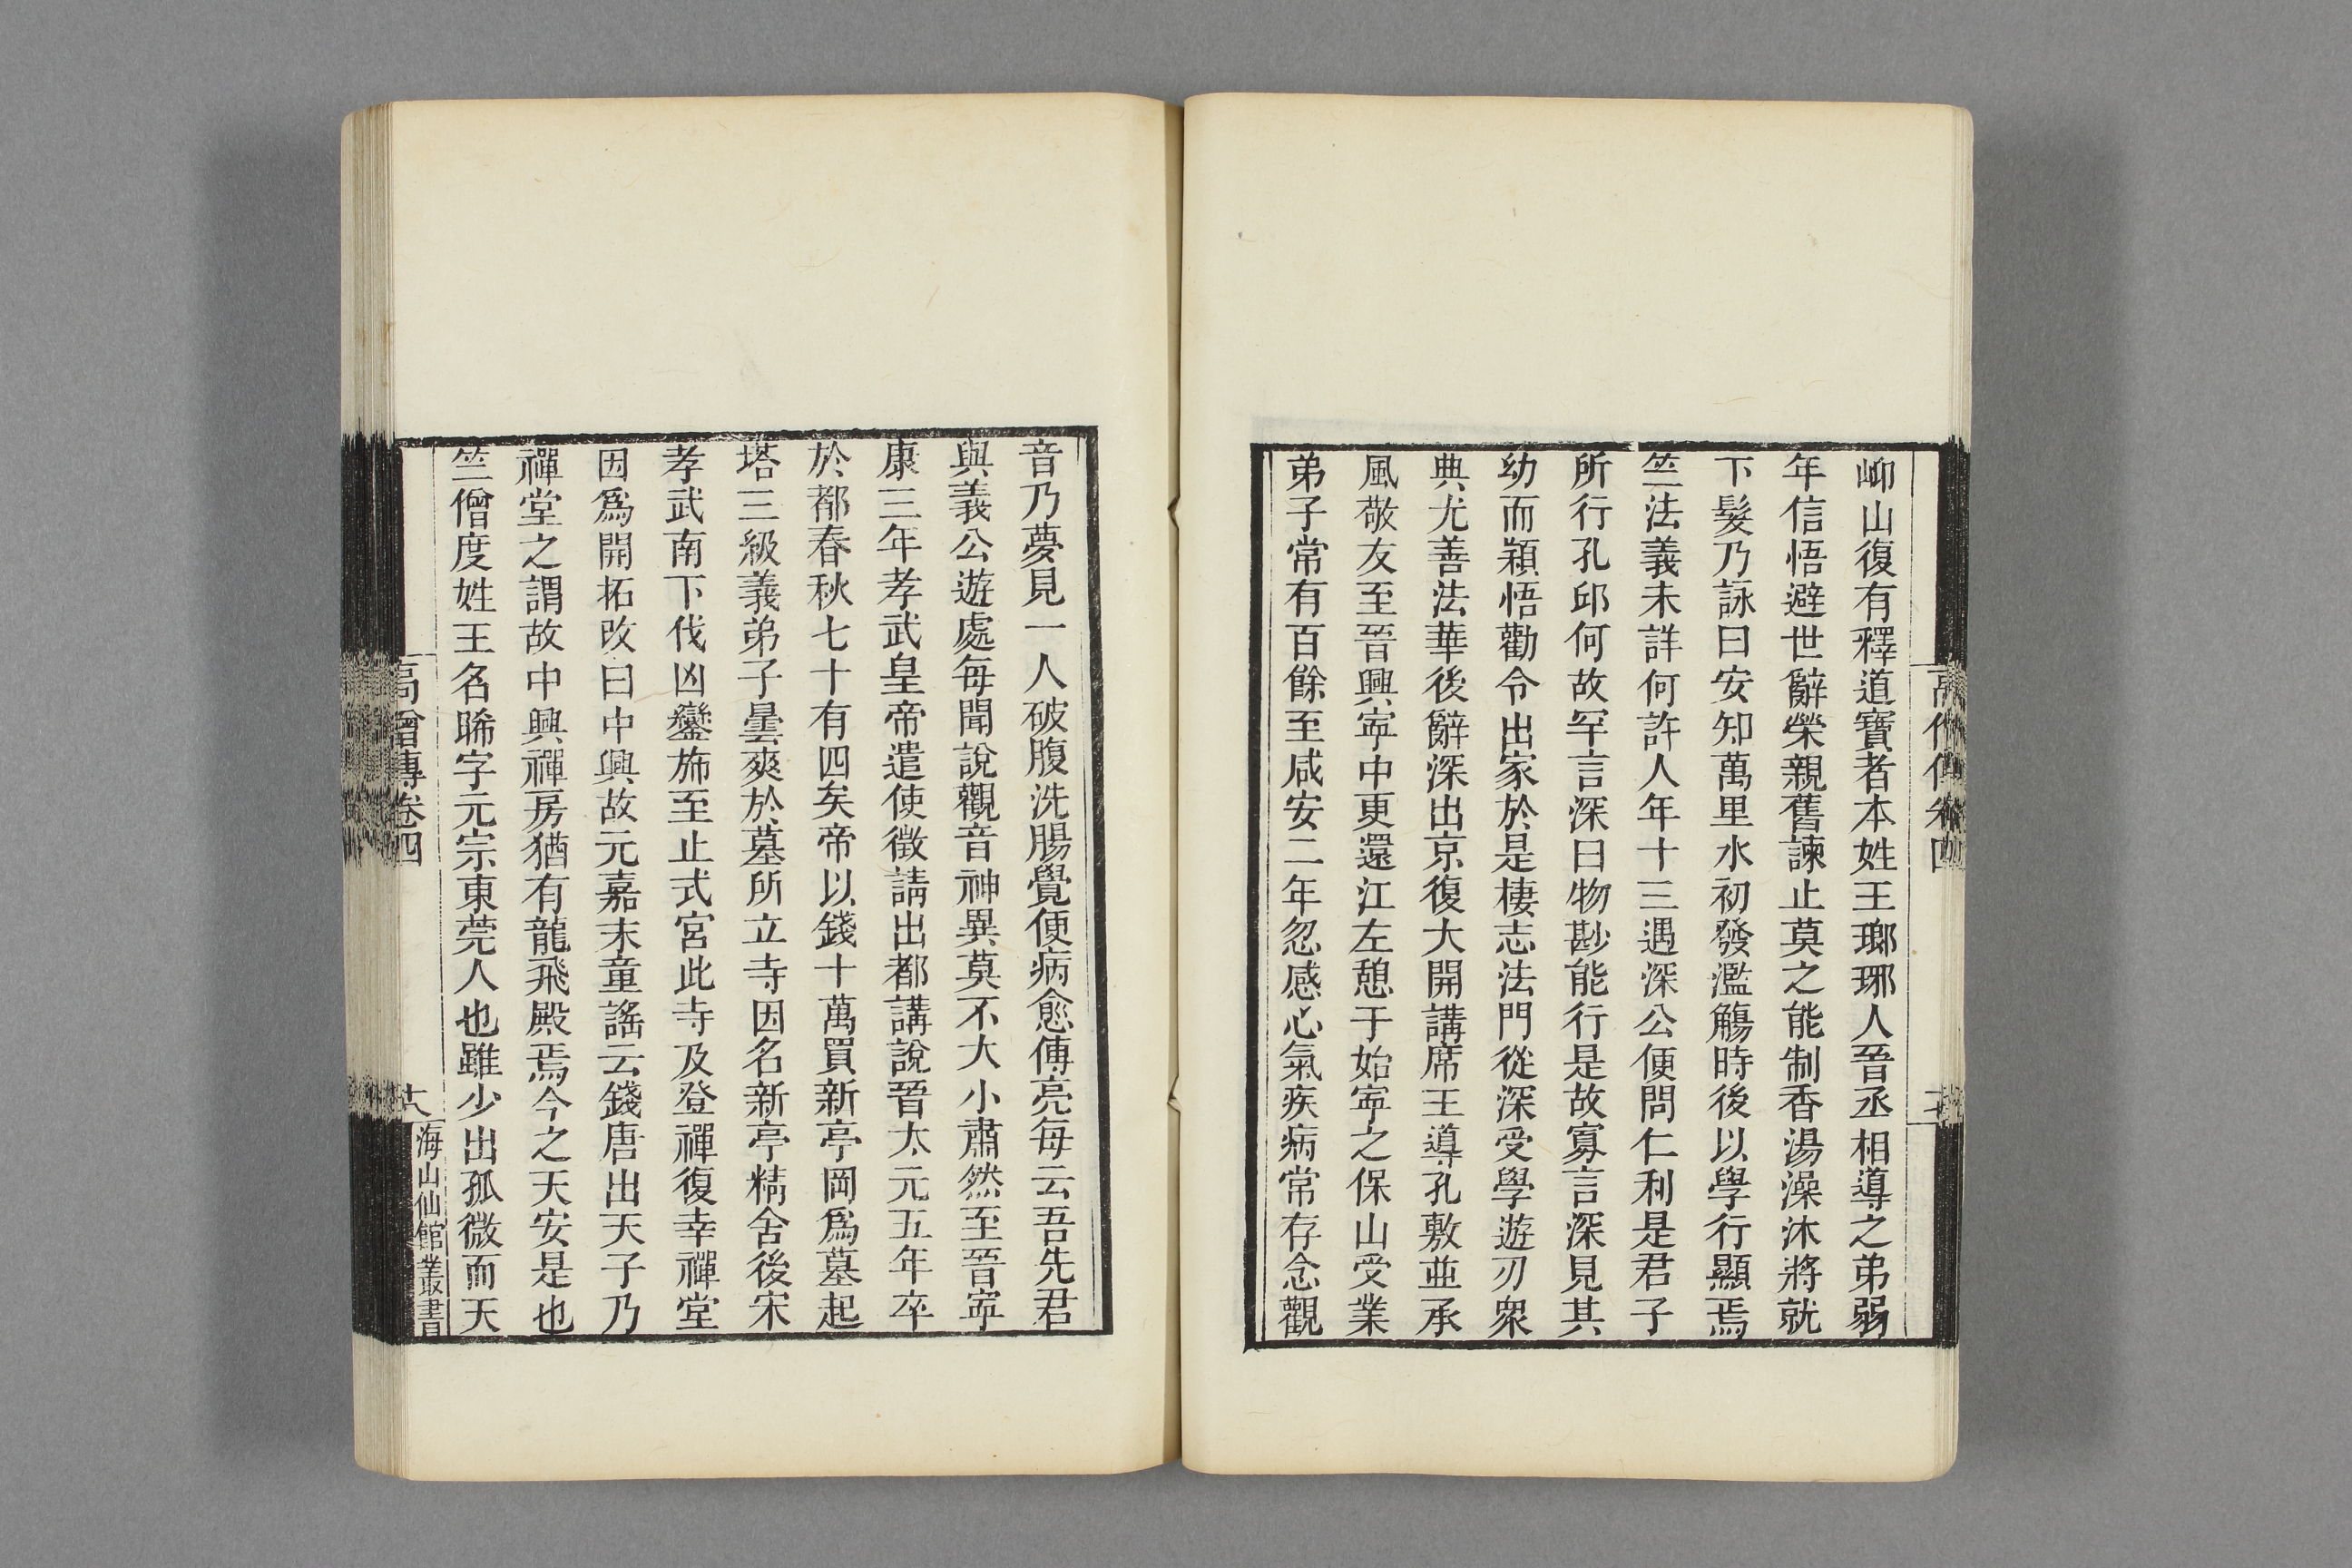 岫山復有釋道寶者本姓王瑯琊人晉丞相導之弟弱
年信悟避世辭榮親舊諫止莫之能制香湯澡沐將就
下髮乃詠曰安知萬里水初發濫觴時後以學行顯焉
竺法義未詳何許人年十三遇深公便問仁利是君子
所行孔邱何故罕言深曰物尠能行是故寡言深見其
幼而穎悟勸令出家於是棲志法門從深受學遊刃衆
典尤善法華後辭深出京復大開講席王導孔敷並承
風敬友至晉興寧中更還江左憩于始寧之保山受業
弟子常有百餘至咸安二年忽感心氣疾病常存念觀
音乃夢見一人破腹洗腸覺便病愈傅亮每云吾先君
與義公遊處每聞說觀音神異莫不大小肅然至晉寧
康三年孝武皇帝遣使徵請出都講說晉太元五年卒
於都春秋七十有四矣帝以錢十萬買新亭岡爲墓起
塔三級義弟子曇爽於墓所立寺因名新亭精舍後宋
孝武南下伐凶鑾斾至止式宮此寺及登禪復幸禪堂
因爲開拓改曰中興故元嘉末童謠云錢唐出天子乃
禪堂之謂故中興禪房猶有龍飛殿焉今之天安是也
竺僧度姓王名晞字元宗東莞人也雖少出孤微而天
高僧傳卷四
十八
海山仙館叢書